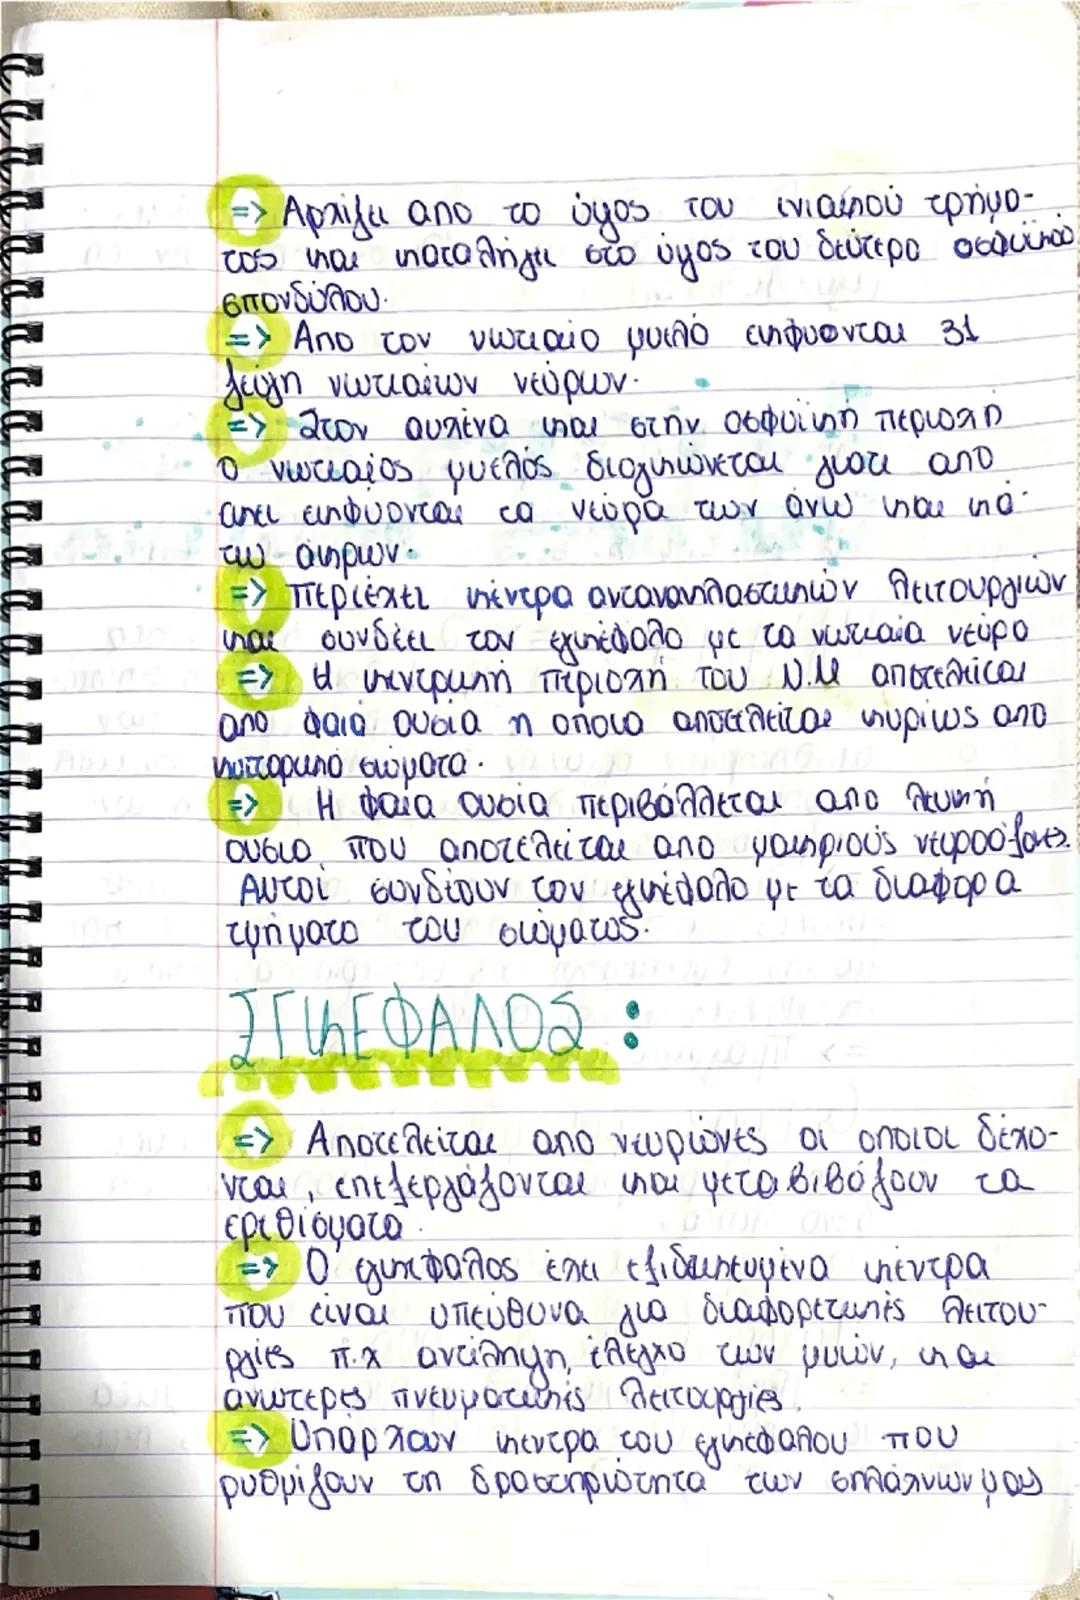 => Αρχίζει απο το ύψος του ινιακού τρήμα-
τος και καταλήγει στο ύψος του δεύτερο οσφυϊκού
σπονδύλου.
=> Απο τον νωτιαίο μυελό εκφύονται 31
ζεύγη νωτιαίων νεύρων.
=> Στον αυχένα και στην οσφυϊκή περιοχή
ο νωτιαίος μυελός διογκώνεται γιατι απο
εκει εκφύονται τα νεύρα των άνω και κά-
τω άκρων.
=> Περιέχει κέντρα αντανακλαστικών λειτουργιών
και συνδέει τον εγκέφαλο με τα νωτιαία νεύρα
=> Η κεντρική περιοχή του Ν.Μ αποτελείται
απο φαιά ουσία η οποια αποτελείται κυρίως απο
κυτταρικά σώματα.
=> Η φαια ουσία περιβάλλεται απο λευκή
ουσια, που αποτελείται απο μακριούς νευροάξονες.
Αυτοί συνδέουν τον εγκέφαλο με τα διαφορα
τμήματα του σώματος.
ΕΓΚΕΦΑΛΟΣ :
=> Αποτελείται απο νευρώνες οι οποιοι δέχο-
νται, επεξεργάζονται και μεταβιβάζουν τα
ερεθίσματα.
=> Ο εγκεφαλος έχει εξιδικευμένα κέντρα
που είναι υπεύθυνα για διαφορετικές λειτου-
ργίες π.χ αντίληψη, έλεγχο των μυών, και
ανωτερες πνευματικές λειτουργίες.
=> Υπάρχουν κεντρα του εγκεφαλου που
ρυθμίζουν τη δραστηριότητα των σπλάχνων μας